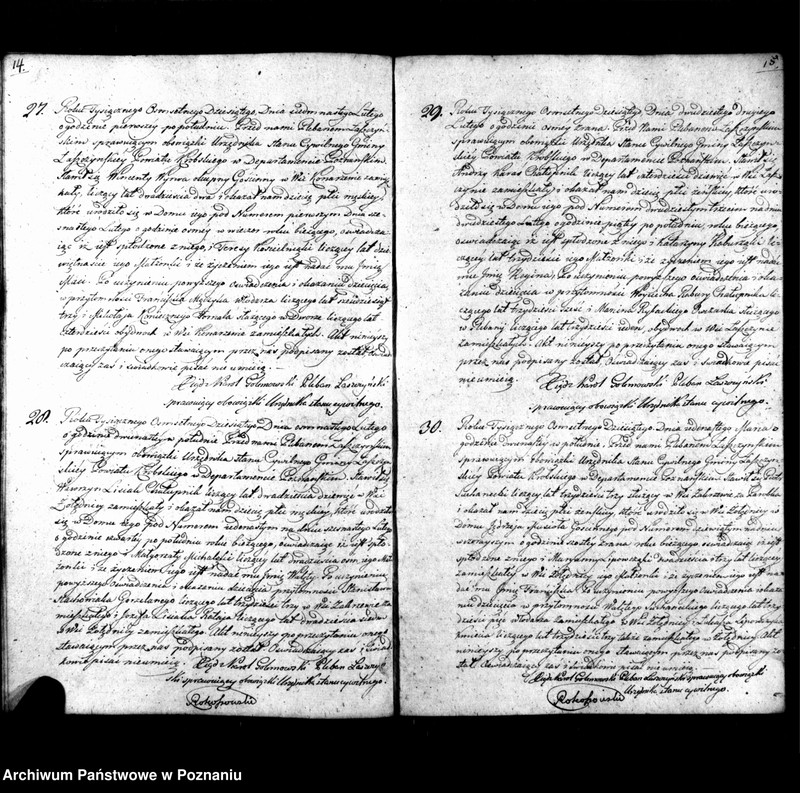 14.
27. Roku Tysiącznego Osmsetnego Dziesiątego, Dnia siedmnastego Lutego
o godzinie pierwszy po południu. Przed nami Plebanem Łaszczyń-
skim sprawującym obowiązki Urzędnika Stanu Cywilnego Gminy
Łaszczyńskiy Powiatu Krobskiego w Departamencie Poznańskim.
Stawił się Wincenty Wyrwa okupny Gościnny w Wsi Konarzewie zamięsz-
kały, liczący lat dwadzieścia dwa i okazał nam dziecię płci męskiey,
które urodziło się w Domu iego pod Numerem pierwszym Dnia sze-
snastego Lutego o godzinie osmey w wieczor roku bieżącego, oswiadcza-
iąc iż iest spłodzone z niego, i Teresy liczący lat dzie-
więtnascie iego Małżonki i że życzeniem iego iest nadać mu Jmię
Maciy. Po uczynieniu powyższego oswiadczenia i okazaniu dziecięcia,
w przytomności Franciszka Włodarza liczącego lat
trzy i Mikołaja Koniecznego służącego w Dworze liczącego lat
czterdzieści obydwoch w Wsi Konarzewie zamięszkałych. Akt ninieyszy
po przeczytaniu onego stawaiącym przez nas podpisany został Oswiad-
czaiący zaś i świadkowie pisać nie umieią.
Xiądz Karol Golimowski Pleban Łaszczyński
sprawuiący obowiązki Urzędnika stanu cywilnego.
28. Roku Tysiącznego Osmsetnego Dziesiątego, Dnia osmnastego Lutego
o godzinie dwunastey w południe Przed nami Plebanem Łaszczyńskim
sprawuiącym obowiązki Urzędnika stanu Cywilnego Gminy Łaszczyń-
skiey Powiatu Krobskiego w Departamencie Poznańskim. Stawił się
Wawrzyn Lisiak Chałupnik liczący lat dwadzieścia dziewięć w Wsi
Żołędnicy zamięszkały i okazał nam dziecię płci męskiey, które urodziło
się w Domu iego pod Numerem iedenastym na dniu szesnastego Lutego
o godzinie czwarty po południu roku bieżącego, oswiadczaiąc iż iest spło-
dzone z niego i Małgorzaty Michalskiy liczący lat dwadzieścia osm, iego Mał-
żonki i że życzeniem iego iest nadać mu Jmię Walęty. Po uczynieniu
powyższego Oswiadczenia i okazaniu dziecięcia w przytomności Stanisława
Stachowiaka Gorzelanego liczącego lat trzydzieści trzy w Wsi Zakrzewie za-
mięszkałego i Jozefa Lisiaka Rataja liczącego lat dwadzieścia siedm
w Wsi Żołędnicy zamięszkałego. Akt ninieyszy po przeczytaniu onego
stawaiącym przez nas podpisany został Oswiadczaiący zaś i świad-
kowie pisać nie umieią. Xiądz Karol Golimowski Pleban Łaszczyń-
ski sprawuiący obowiązki Urzędnika stanu cywilnego.
Rokossowski
15
29. Roku Tysiącznego Osmsetnego Dziesiątego Dnia dwudziestego drugiego
Lutego o godzinie osmey zrana. Przed Nami Plebanem Łaszczyńskim
sprawuiącym obowiązki Urzędnika Stanu Cywilnego Gminy Łaszczyń-
skiey Powiatu Krobskiego w Departamencie Poznańskim. Stawił się
Andrzey Karas Chałupnik liczący lat czterdzieści dziewięć w Wsi Łasz-
czynie zamięszkały i okazał nam dziecię płci żeńskiey które uro-
dziło się w Domu iego pod Numerem dwudziestym trzecim na dniu
dwudziestego Lutego o godzinie piąty po południu, roku bieżącego,
oswiadczaiąc iż iest spłodzone z niego i Katarzyny li-
czący lat trzydzieści iego Małżonki i że życzeniem iego iest nadać
mu Jmię Regina. Po uczynieniu powyższego oswiadczenia i oka-
zaniu dziecięcia w przytomności Woyciecha Chałupnika li-
czącego lat trzydzieści sześć i Marcina służącego
w Plebanij liczącego lat trzydzieści ieden, obydwoch w Wsi Łaszczynie
zamięszkałych. Akt ninieyszy po przeczytaniu onego stawaiącym
przez nas podpisany został Oswiadczaiący zaś i świadkowie pisać
nie umieią. Xiądz Karol Golimowski Pleban Łaszczyński
sprawuiący obowiązki Urzędnika stanu cywilnego.
30. Roku Tysiącznego Osmsetnego Dziesiątego. Dnia iedenastego Marca o
godzinie dwunastey w południe. Przed nami Plebanem Łaszczyńskim
sprawuiącym obowiązki Urzędnika Stanu Cywilnego Gminy Łaszczyń-
skiey Powiatu Krobskiego w Departamencie Poznańskim Stawił się Piotr
liczący lat trzydzieści trzy służący w Wsi Zakrzewie za
i okazał nam dziecię płci żeńskiey, które urodziło się w Wsi Żołędnicy w
domu Gościnnego pod Numerem dziewiątym na dniu
o godzinie szosty zrana roku bieżącego oswiadczaiąc iż iest
spłodzone z niego i Maryanny dwadzieścia i trzy lat liczący
zamięszkałey w Wsi Żołędnicy iego Małżonki i że życzeniem iego iest na-
dać mu Jmię Franciszka. Po uczynieniu powyższego oswiadczenia i okaza-
niu dziecięcia w przytomności Walętego liczącego lat trzy-
dzieści pięć włodarza zamięszkałego w Wsi Żołędnicy i Łukasza
kmiecia liczącego lat trzydzieści trzy także zamięszkałego w Żołędnicy. Akt
ninieyszy po przeczytaniu onego stawaiącym przez nas podpisany zo-
stał Oswiadczaiący zaś i świadkowie pisać nie umieią.
Xiądz Karol Golimowski Pleban Łaszczyński sprawuiący obowiązki
Urzędnika stanu cywilnego.
Rokossowski
Archiwum Państwowe w Poznaniu